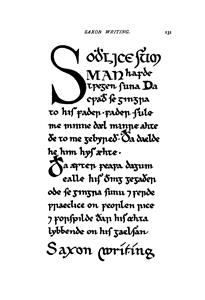 SAXON WRITING. 131
Soðlice sum
man hæfde
twegen suna Ða
cwæð se gingra
to his fæder. Fæder. syle
me minne dæl minre æhte
ðe to me gebyreð. Ða dælde
he him hys æhte.
Ða æfter feawa dagum
ealle his ðing gegader
ode se gingra sunu ⁊ ferde
wræclice on feorlen rice
⁊ forspilde ðar his æhta
lybbende on his gaelsan.
Saxon writing